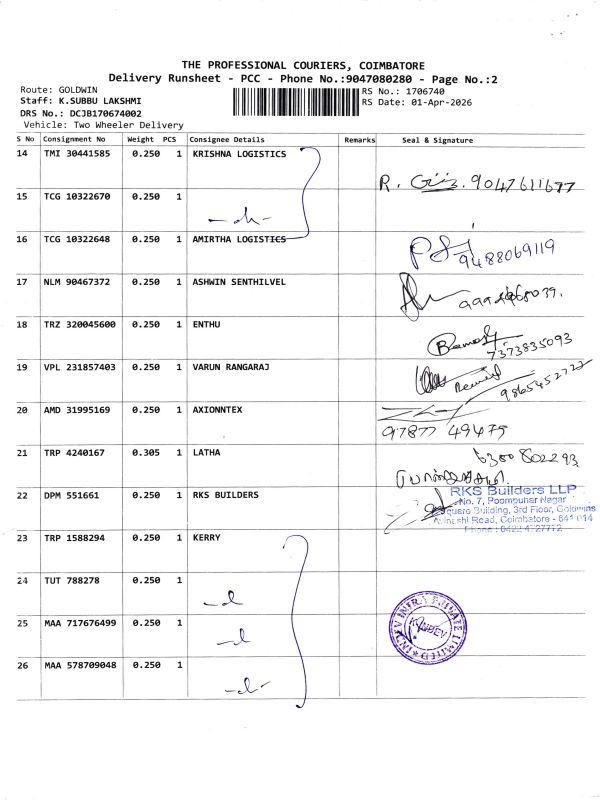 THE PROFESSIONAL COURIERS, COIMBATORE
Delivery Runsheet - PCC - Phone No.:9047080280 - Page No.:2
Route: GOLDWIN
Staff: K.SUBBU LAKSHMI
DRS No.: DCJB170674002
Vehicle: Two Wheeler Delivery
RS No.: 1706740
RS Date: 01-Apr-2026
S No Consignment No Weight PCS Consignee Details Remarks Seal & Signature
14 TMI 30441585 0.250 1 KRISHNA LOGISTICS
R. 9047611677
15 TCG 10322670 0.250 1
16 TCG 10322648 0.250 1 AMIRTHA LOGISTICS
9488069119
17 NLM 90467372 0.250 1 ASHWIN SENTHILVEL
18 TRZ 320045600 0.250 1 ENTHU
7373835093
19 VPL 231857403 0.250 1 VARUN RANGARAJ
9865452722
20 AMD 31995169 0.250 1 AXIONNTEX
97877 49475
21 TRP 4240167 0.305 1 LATHA
6300802293
22 DPM 551661 0.250 1 RKS BUILDERS
RKS Builders LLP
No. 7, Poompuhar Nagar
Square Building, 3rd Floor, Goldwins
Avinashi Road, Coimbatore - 641 014
Phone : 0422 4527712
23 TRP 1588294 0.250 1 KERRY
24 TUT 788278 0.250 1
25 MAA 717676499 0.250 1
INDEV INFRA PRIVATE LIMITED
26 MAA 578709048 0.250 1